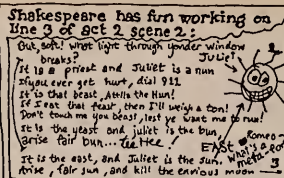 Shakespeare has fun working on
line 3 of act 2 scene 2:
But, soft! what light through yonder window
breaks?
It is a priest and Juliet is a nun
If you ever get hurt, dial 911
It is that beast, Attila the Hun!
If I eat that feast, then I'll weigh a ton!
Don't touch me you beast, lest ye want me to run!
It is the yeast and juliet is the bun,
arise fair bun... tee hee!
It is the east, and Juliet is the sun.
Arise, fair sun, and kill the envious moon
Juliet
EAST
Romeo-
what's a
meta-for
3